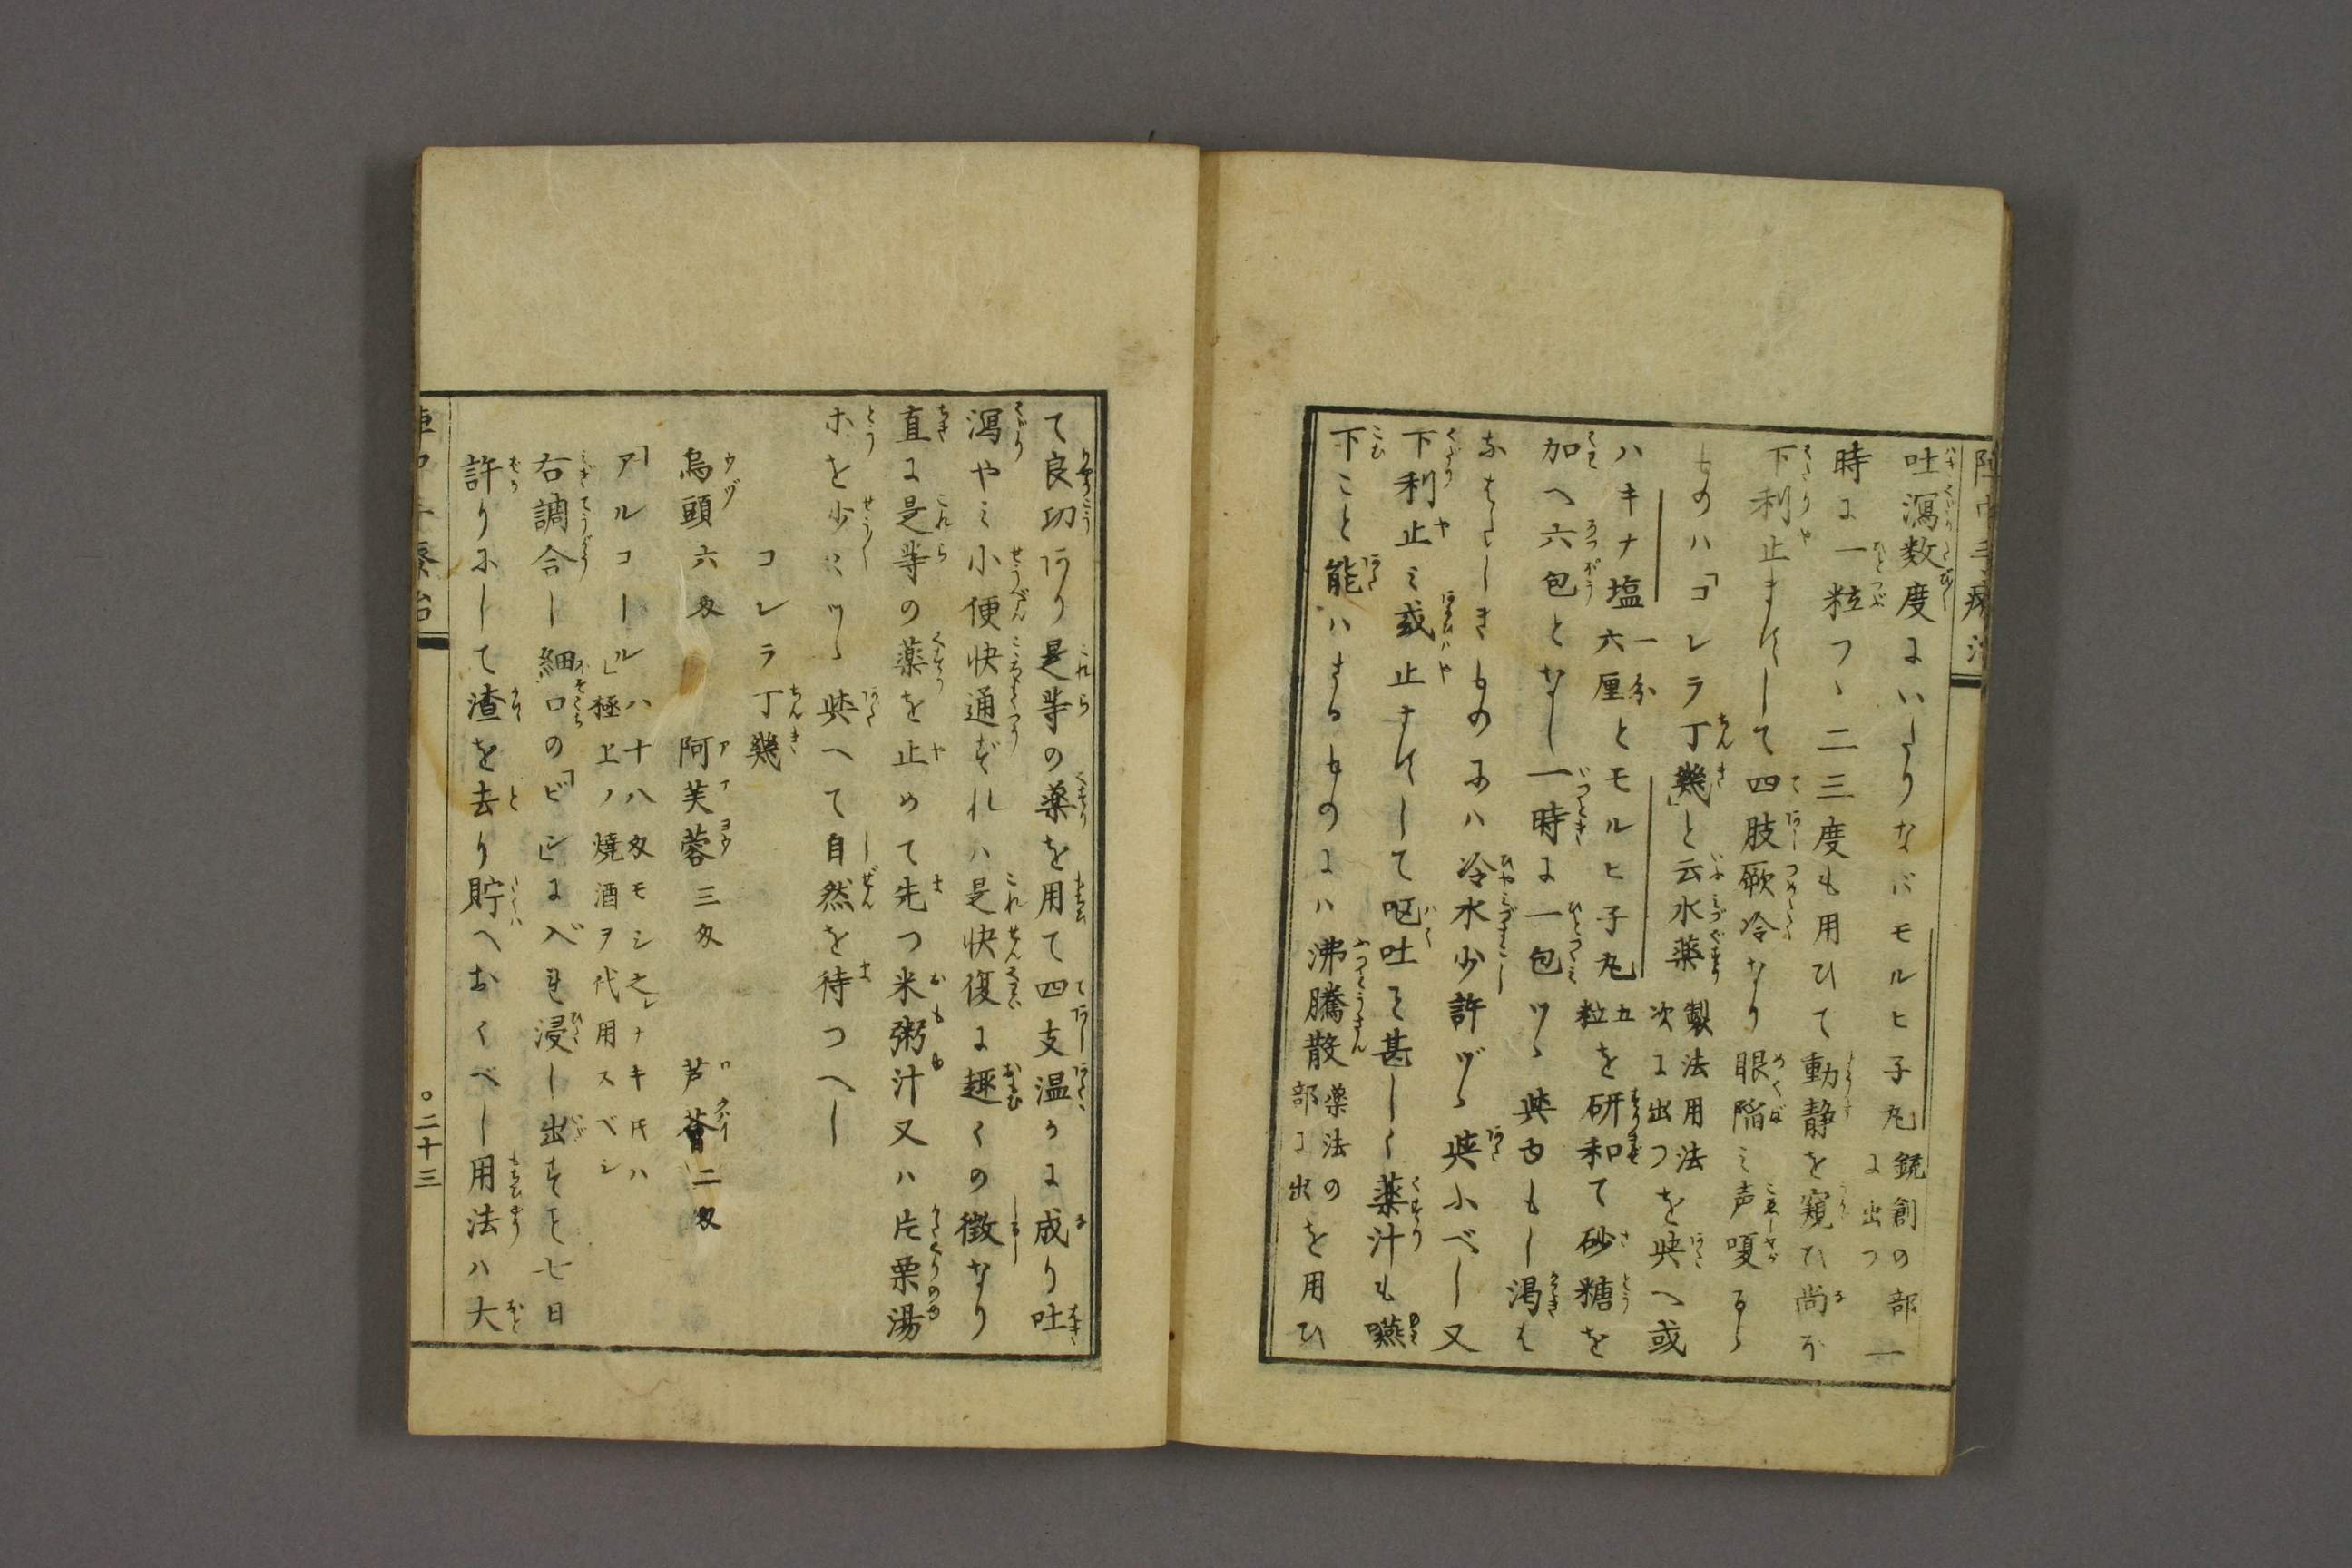 吐瀉数度にいたりなバモルヒ子丸銃創の部に出つ一
時に一粒つゝ二三度も用ひて動静を窺ひ尚ホ
下利止まずして四肢厥冷なり眼陥ミ声嗄るゝ
ものハ「コレラ丁幾」と云水薬製法用法次に出つを與へ或
ハキナ塩一分六厘とモルヒ子丸五粒を研和て砂糖を
加へ六包となし一時に一包ツヽ與ふもし渇は
なはだしきものにハ冷水少許ヅヽ與ふべし又
下利止ミ或止まずして呕吐そ甚しく薬汁も嚥
下こと能ハざるものにハ沸騰散薬法の部に出を用ひ
て良功あり是等の薬を用て四支温かに成り吐
瀉やミ小便快通ずれハ是快復に趣くの徴なり
直に是等の薬を止めて先つ米粥汁又ハ片栗湯
ホを少〻ツヽ與へて自然を待つへし
コレラ丁幾
烏頭六匁 阿芙蓉三匁 芦薈二匁
「アルコール」ハ十八匁モシ之レナキ片ハ極上ノ焼酒ヲ代用スベシ
右調合し細口の「ビン」に入れ浸し出すこと七日
許りにして渣を去り貯へおくべし用法ハ大
二十三